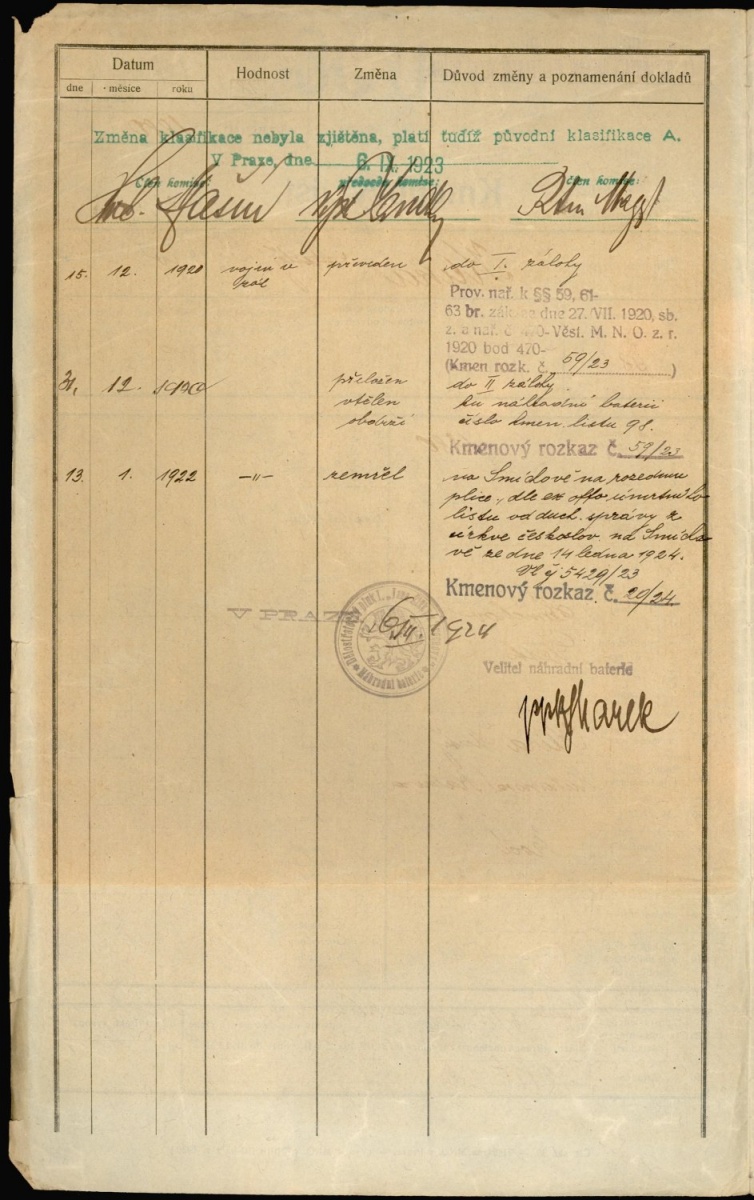 Datum Hodnost Změna Důvod změny a poznamenání dokladů
dne měsíce roku
Změna klasifikace nebyla zjištěna, platí tudíž původní klasifikace A.
V Praze, dne 6. IX. 1923
Člen komise: předseda komise: člen komise:
15. 12. 1920 vojín v převeden do I. zálohy
zál
Prov. nař. k §§ 59, 61-
63 br. zák. ze dne 27./VII. 1920, sb.
z. a nař. č 470- Věst. M. N. O. z r.
1920 bod 470-
(Kmen rozk. č. 59/23)
31. 12. 1920 přeložen do II zálohy
vtělen ku náhradní baterii
obdrží číslo kmen. listu 98.
Kmenový rozkaz č. 59/23
13. 1. 1922 -"- zemřel na Smíchově na rozedmu
plic, dle ex offo úmrtního
listu od duch. správy z
církve českoslov. na Smícho
vě ze dne 14 ledna 1924.
5429/23
Kmenový rozkaz č. 20/24
V PRAZE 1924
Náhradní baterie
Velitel náhradní baterie
Marek